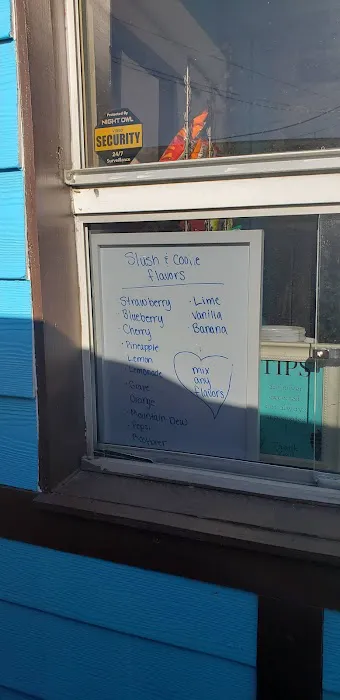 Protected By
NIGHT OWL
SECURITY
24/7
Surveillance
Slush & Coolie
flavors
Strawberry
· Blueberry
· Cherry
· Pineapple
Lemon
Lemonade
Grape
Orange
· Mountain Dew
· Pepsi
· Rootbeer
· Lime
Vanilla
Banana
mix
any
flavors
TIPS